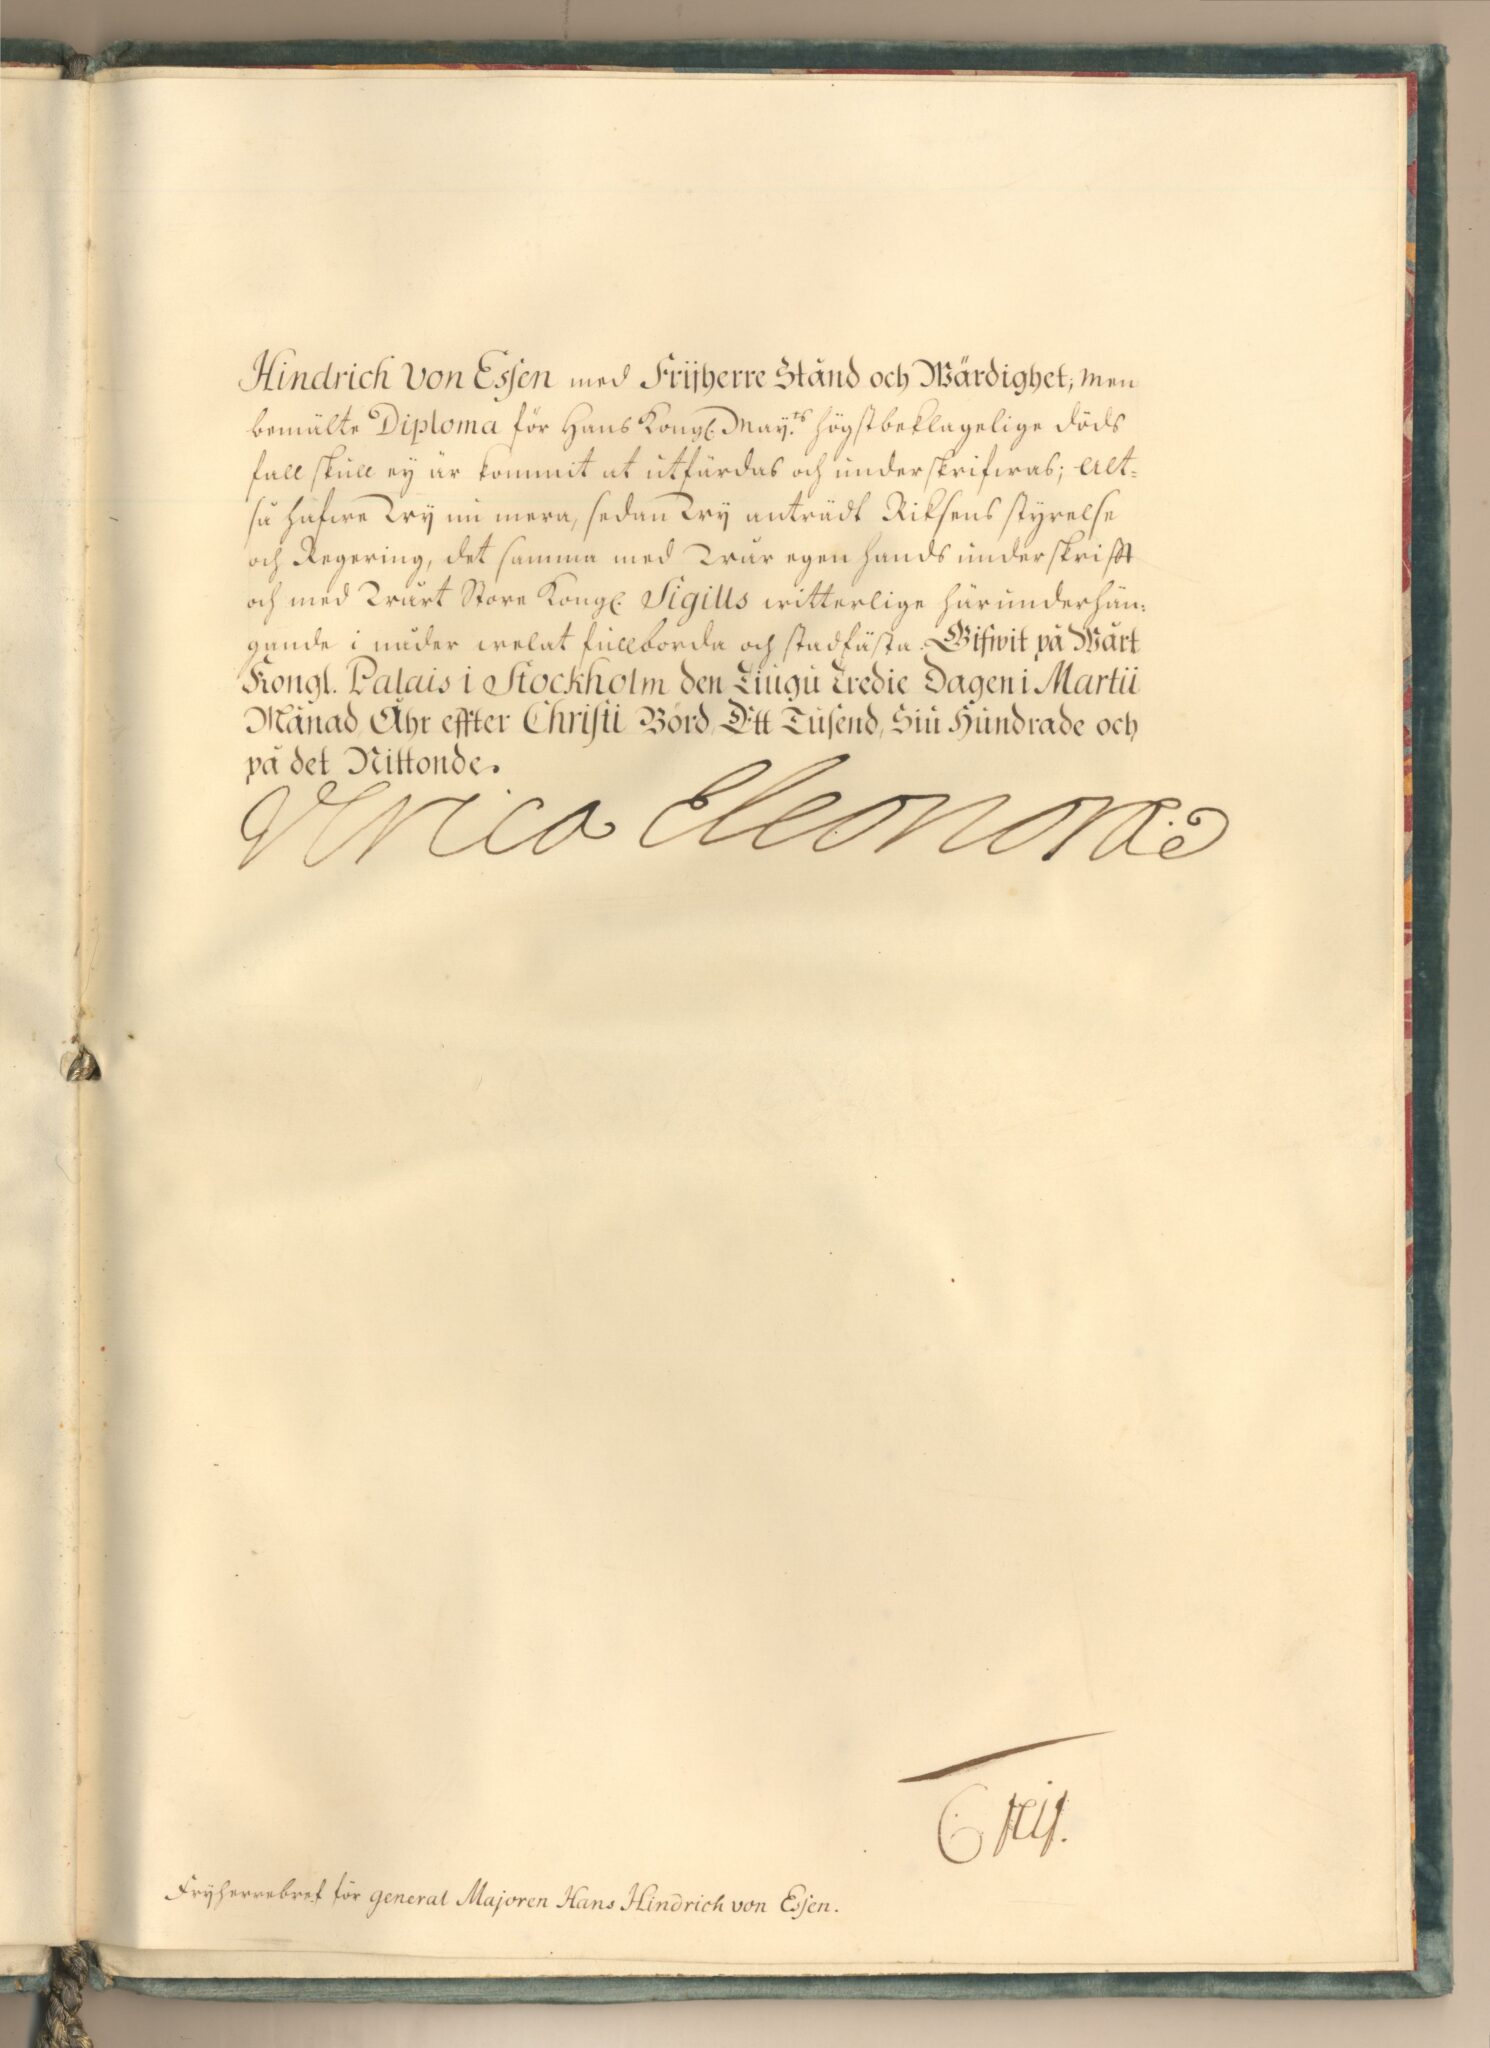 Hindrich von Essen med Frijherre Stånd och Wärdighet; men
bemälte Diploma för Hans Kongl. May:ts högstbeklagelige döds
fall skull ey är kommit at utfärdas och underskrifwas; Alt=
så hafwe Wy nu mera, sedan Wy anträdt Riksens styrelse
och Regering, det samma med Wår egen hands underskrifft
och med Wårt Store Kongl. Sigills witterlige härunderhän:
gande i nåder welat fullborda och stadfästa. Gifwit på Wårt
Kongl. Palais i Stockholm den Tiugu Tredie Dagen i Martii
Månad, Åhr effter Christi Börd, Ett Tusend, Siu Hundrade och
på det Nittonde.
Vlrica Eleonora
Fryherrebref för general Majoren Hans Hindrich von Essen.